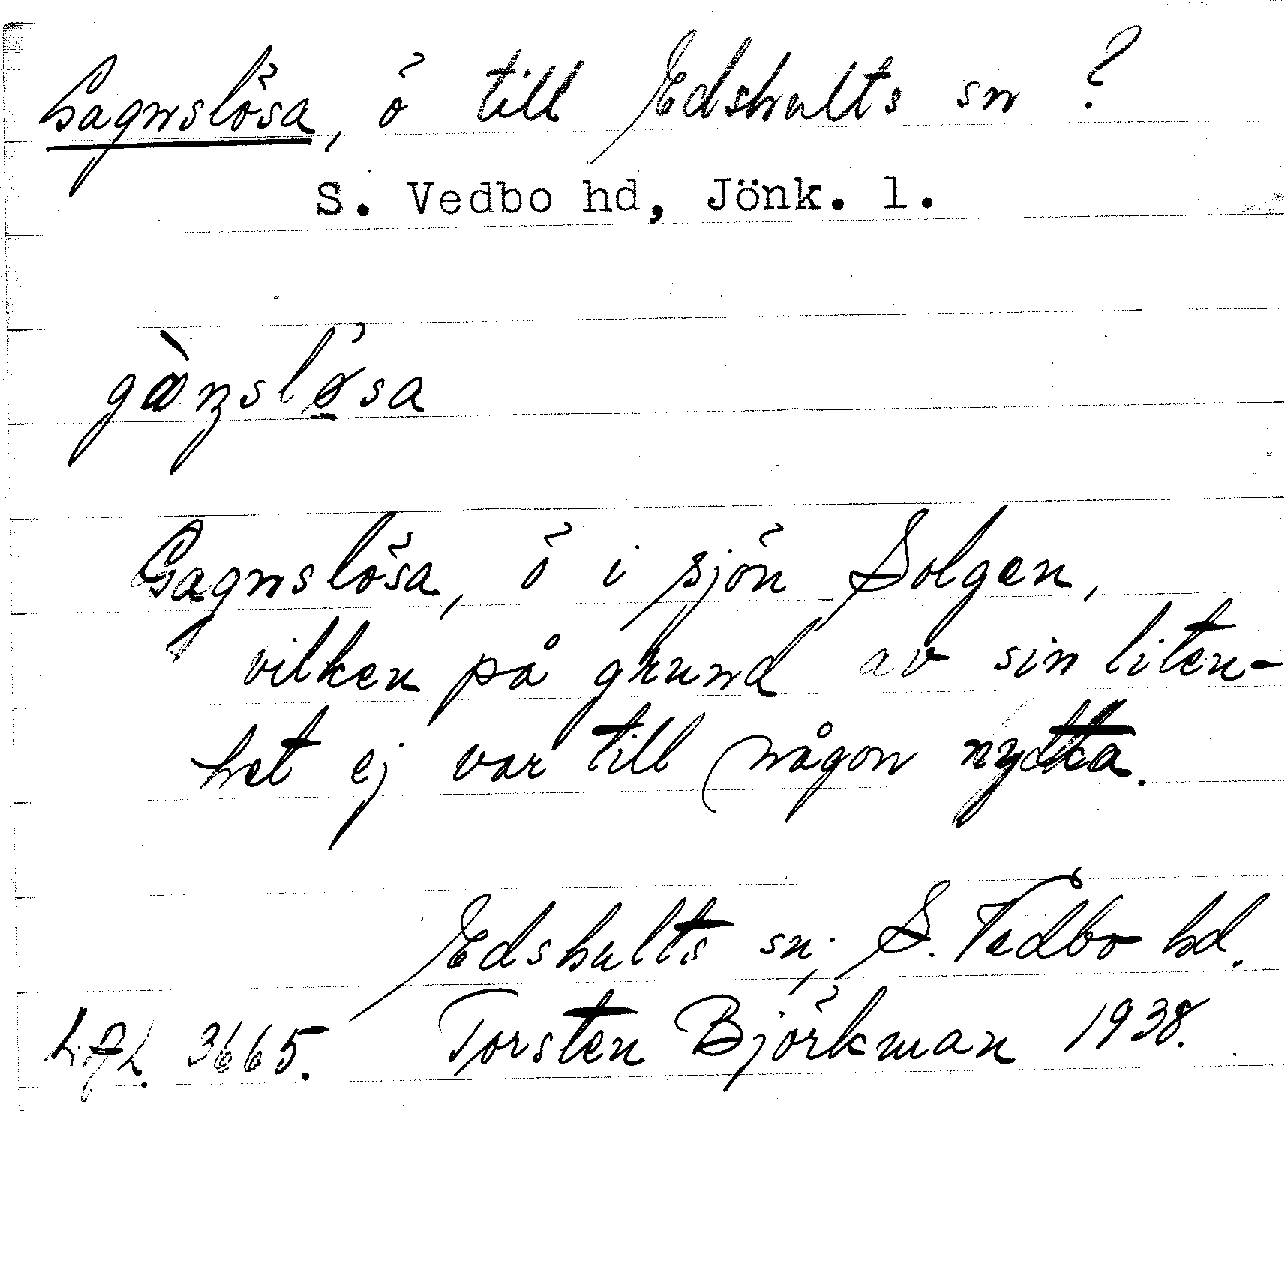 Gagnslösa, ö till Edshults sn ?
S. Vedbo hd, Jönk. l.
Gagnslösa, ö i sjön Solgen,
vilken på grund av sin liten-
het ej var till någon nytta.
Edshults sn; S. Vedbo hd.
3665. Torsten Björkman 1938.